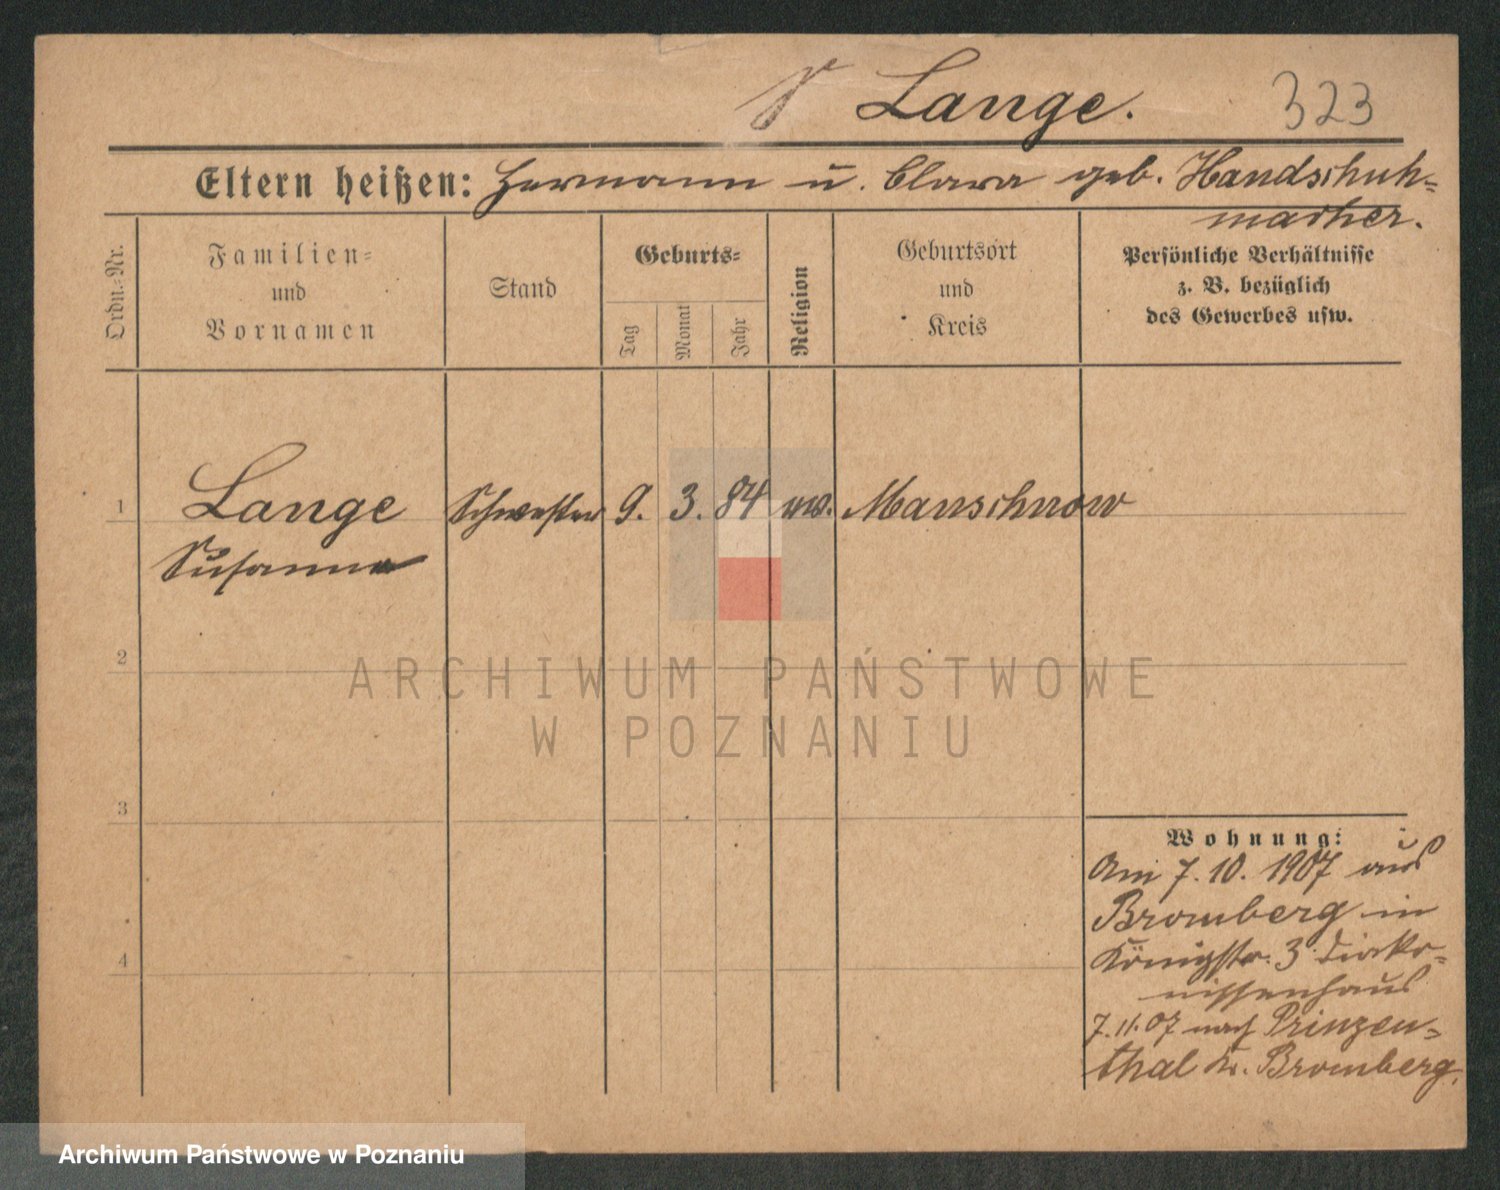 Lange.
323
Eltern heißen: Hermann u. Clara geb. Handschuh-
macher.
Ordn.-Nr.
Familien-
und
Vornamen
Stand
Geburts-
Tag
Monat
Jahr
Religion
Geburtsort
und
Kreis
Persönliche Verhältnisse
z. B. bezüglich
des Gewerbes usw.
1
Lange
Susanna
Schwester
9.
3.
84
ev.
Manschnow
2
ARCHIWUM PAŃSTWOWE
W POZNANIU
3
4
Wohnung:
Am 7. 10. 1907 aus
Bromberg in
Königstr. 3 Diako-
nissenhaus
7.11.07 nach Prinzen-
thal Kr. Bromberg.
Archiwum Państwowe w Poznaniu